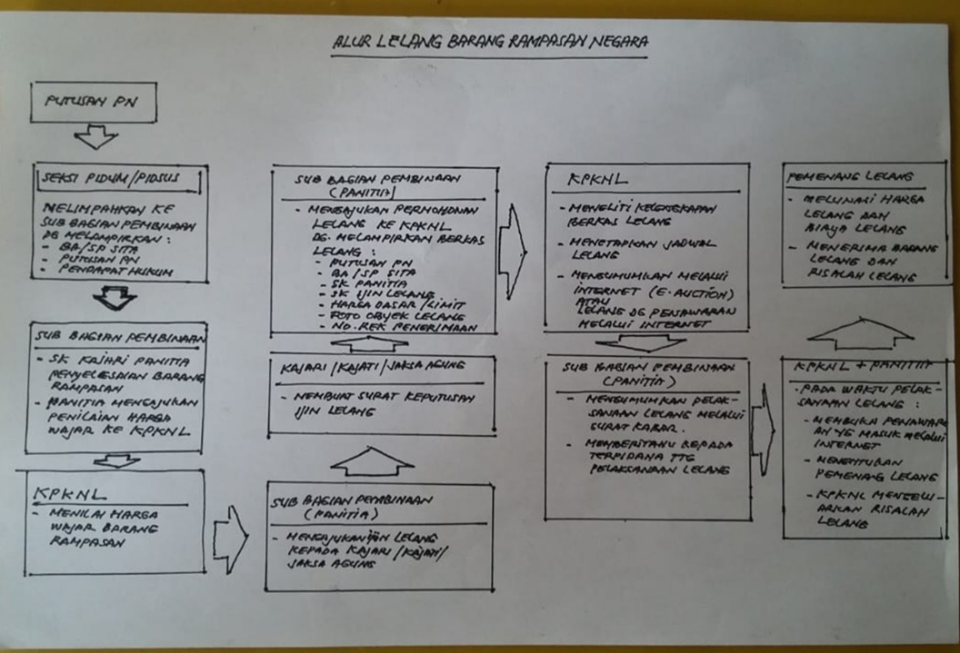 ALUR LELANG BARANG RAMPASAN NEGARA
PUTUSAN PN
SEKSI PIDUM/PIDSUS
MELIMPAHKAN KE
SUB BAGIAN PEMBINAAN
DG MELAMPIRKAN :
- BA/SP SITA
- PUTUSAN PN
- PENDAPAT HUKUM
SUB BAGIAN PEMBINAAN
- SK KAJARI PANITIA
PENYELESAIAN BARANG
RAMPASAN
- PANITIA MENGAJUKAN
PENILAIAN HARGA
WAJAR KE KPKNL
KPKNL
- MENILAI HARGA
WAJAR BARANG
RAMPASAN
SUB BAGIAN PEMBINAAN
(PANITIA)
- MENGAJUKAN IJIN LELANG
KEPADA KAJARI/KAJATI/
JAKSA AGUNG
KAJARI/KAJATI/JAKSA AGUNG
- MEMBUAT SURAT KEPUTUSAN
IJIN LELANG
SUB BAGIAN PEMBINAAN
(PANITIA)
- MENGAJUKAN PERMOHONAN
LELANG KE KPKNL
DG. MELAMPIRKAN BERKAS
LELANG :
- PUTUSAN PN
- BA/SP SITA
- SK PANITIA
- SK IJIN LELANG
- HARGA DASAR/LIMIT
- FOTO OBYEK LELANG
- NO. REK PENERIMAAN
KPKNL
- MENELITI KELENGKAPAN
BERKAS LELANG
- MENETAPKAN JADWAL
LELANG
- MENGUMUMKAN MELALUI
INTERNET (E-AUCTION)
ATAU
LELANG DG PENAWARAN
MELALUI INTERNET
SUB BAGIAN PEMBINAAN
(PANITIA)
- MENGUMUMKAN PELAK-
SANAAN LELANG MELALUI
SURAT KABAR.
- MEMBERITAHU KEPADA
TERPIDANA TTG
PELAKSANAAN LELANG
KPKNL + PANITIA
- PADA WAKTU PELAK-
SANAAN LELANG :
- MEMBUKA PENAWAR
AN YG MASUK MELALUI
INTERNET
- MENENTUKAN
PEMENANG LELANG
- KPKNL MENGELU-
ARKAN RISALAH
LELANG
PEMENANG LELANG
- MELUNASI HARGA
LELANG DAN
BIAYA LELANG
- MENERIMA BARANG
LELANG DAN
RISALAH LELANG